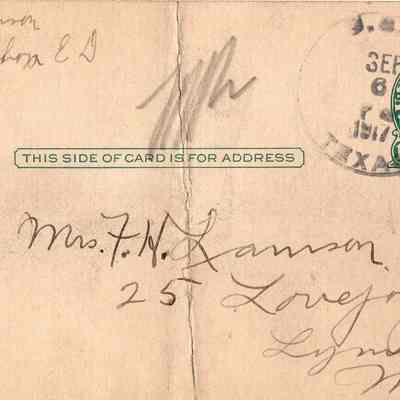 SEP
6
1917
TEXA
THIS SIDE OF CARD IS FOR ADDRESS
Mrs. F. H. Lamson.
25 Lovejo
Lyn